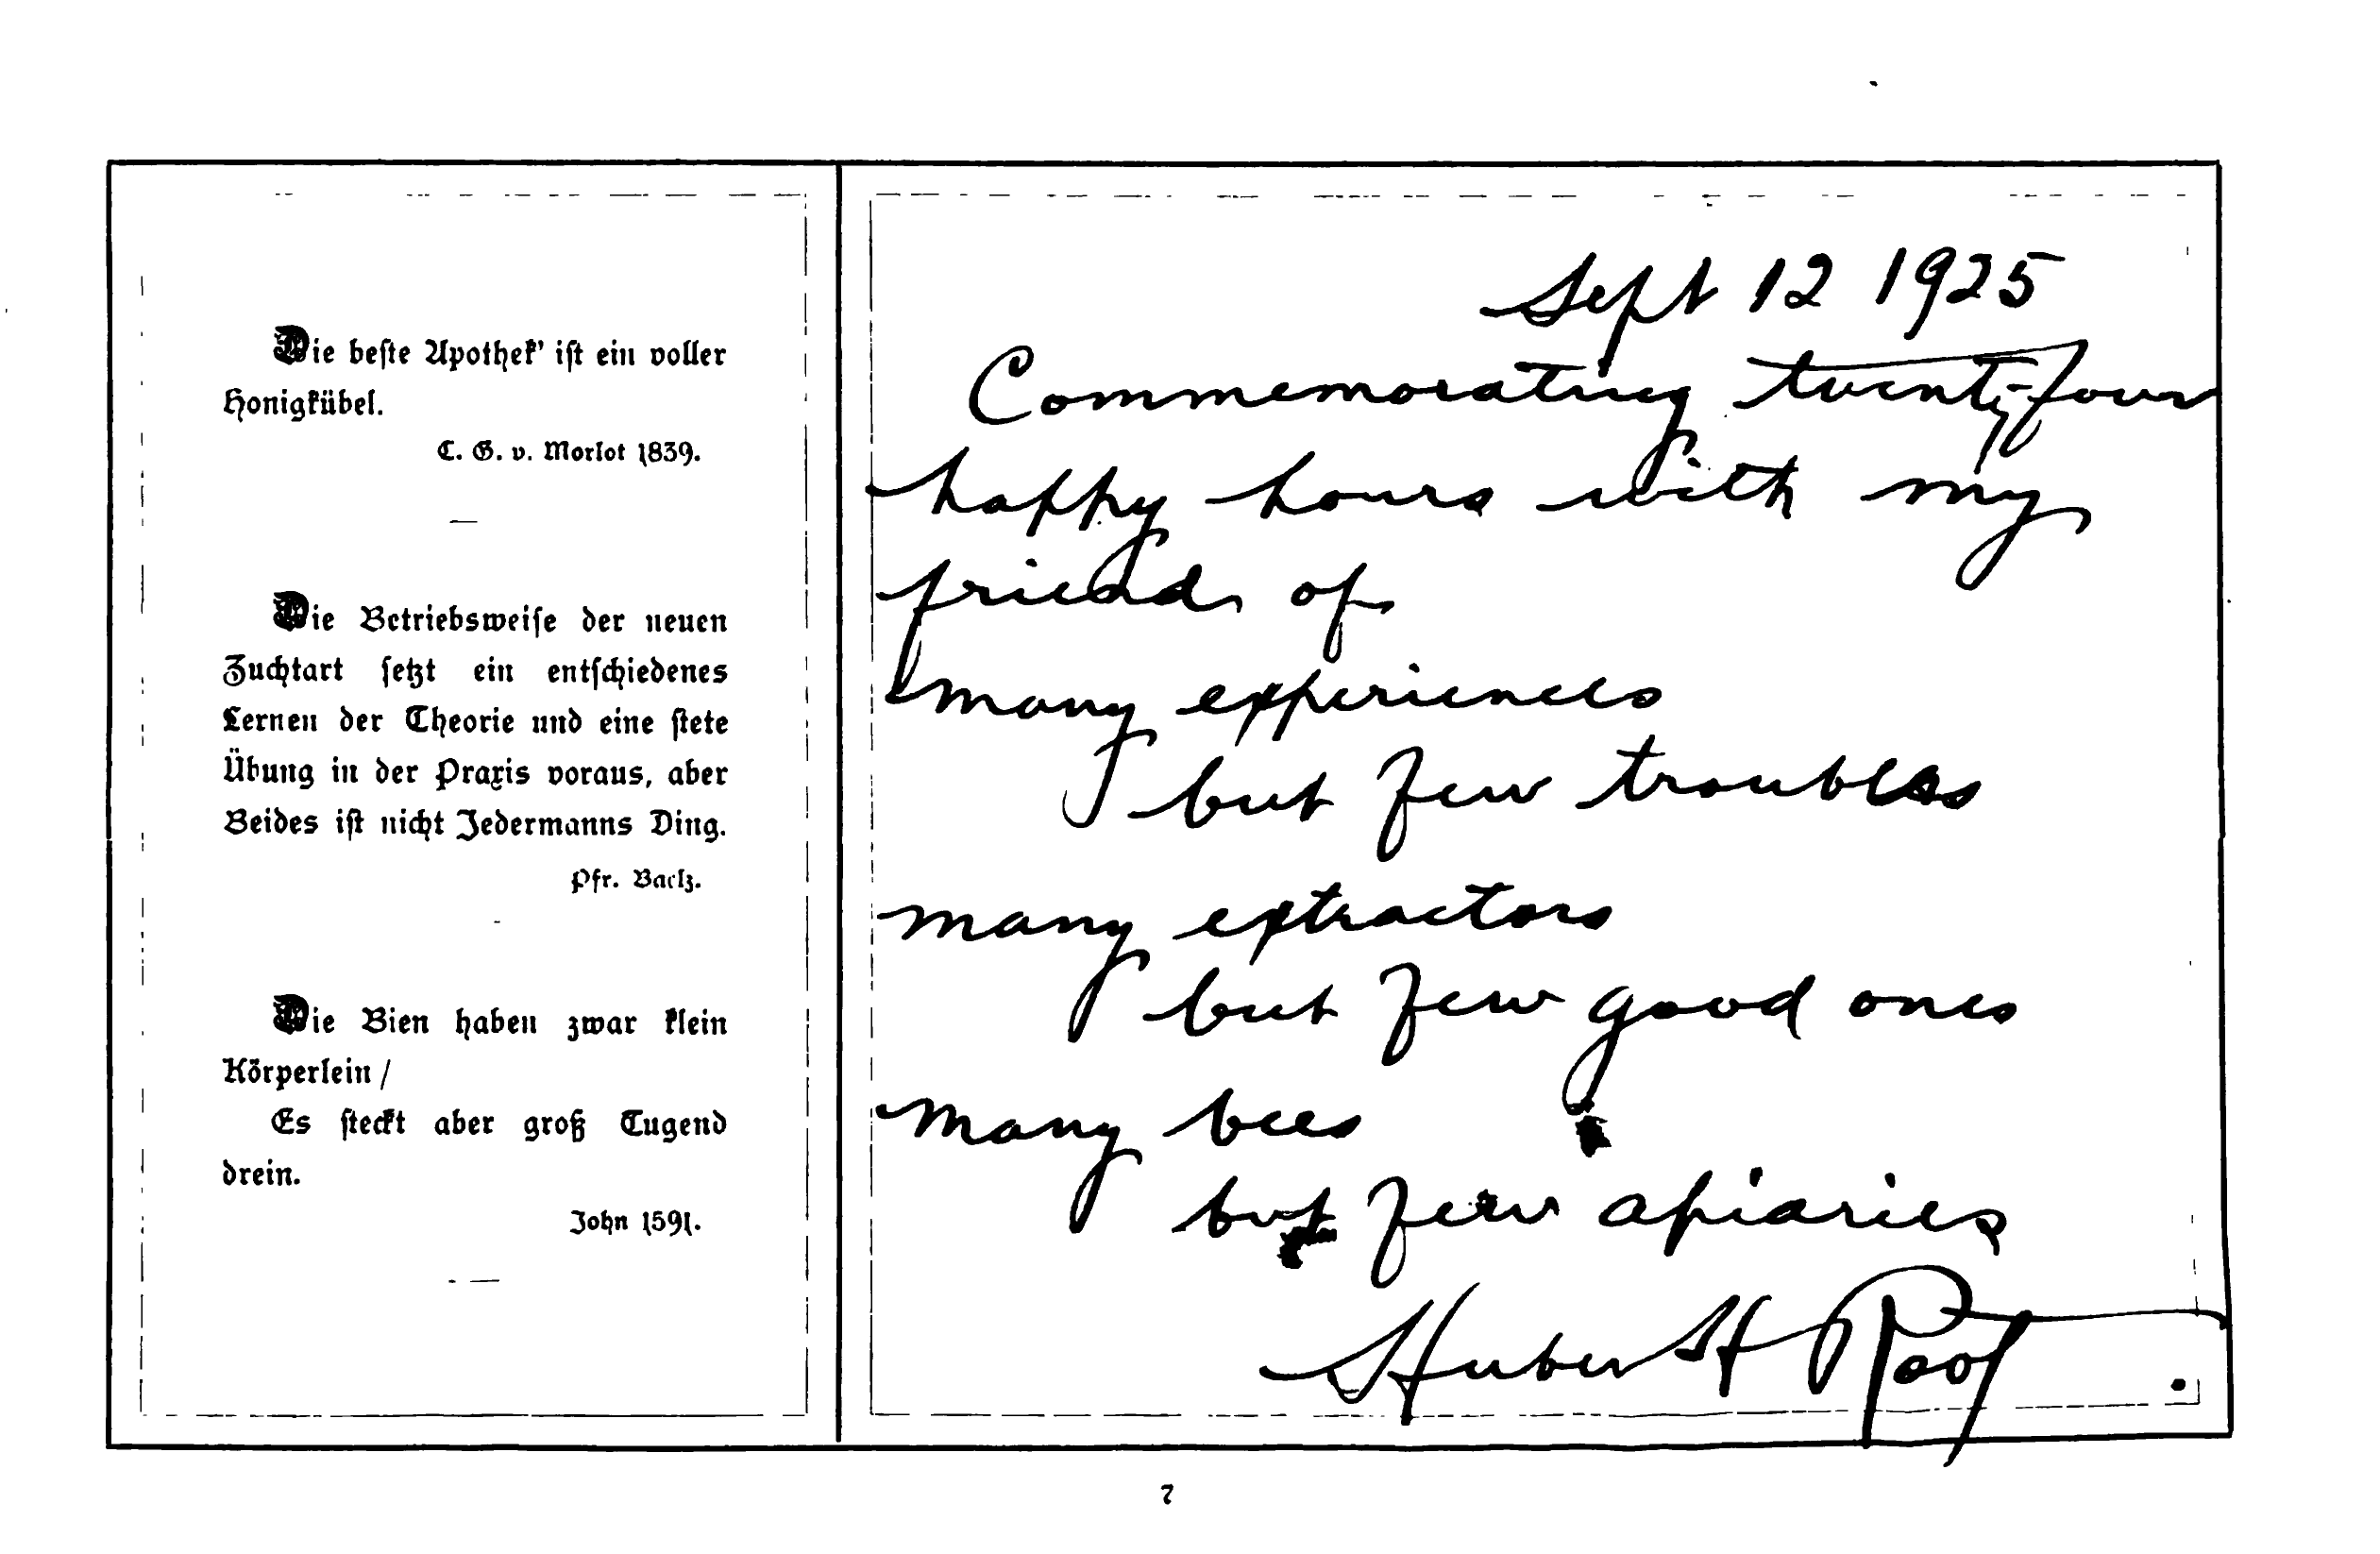 Die beste Apothek' ist ein voller
Honigkübel.
C. G. v. Morlot 1839.
Die Betriebsweise der neuen
Zuchtart setzt ein entschiedenes
Lernen der Theorie und eine stete
Übung in der Praxis voraus, aber
Beides ist nicht Jedermanns Ding.
Pfr. Baelz.
Die Bien haben zwar klein
Körperlein /
Es steckt aber groß Tugend
drein.
John 1591.
Sept 12 1925
Commemorating twenty-four
happy hours with my
friends of
many experiences
but few troubles
many extractors
but few good ones
many bees
but few apiaries
Huber H Root
7